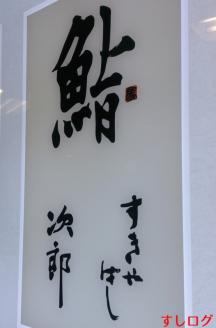 鮨
すきやばし
次郎
すしログ